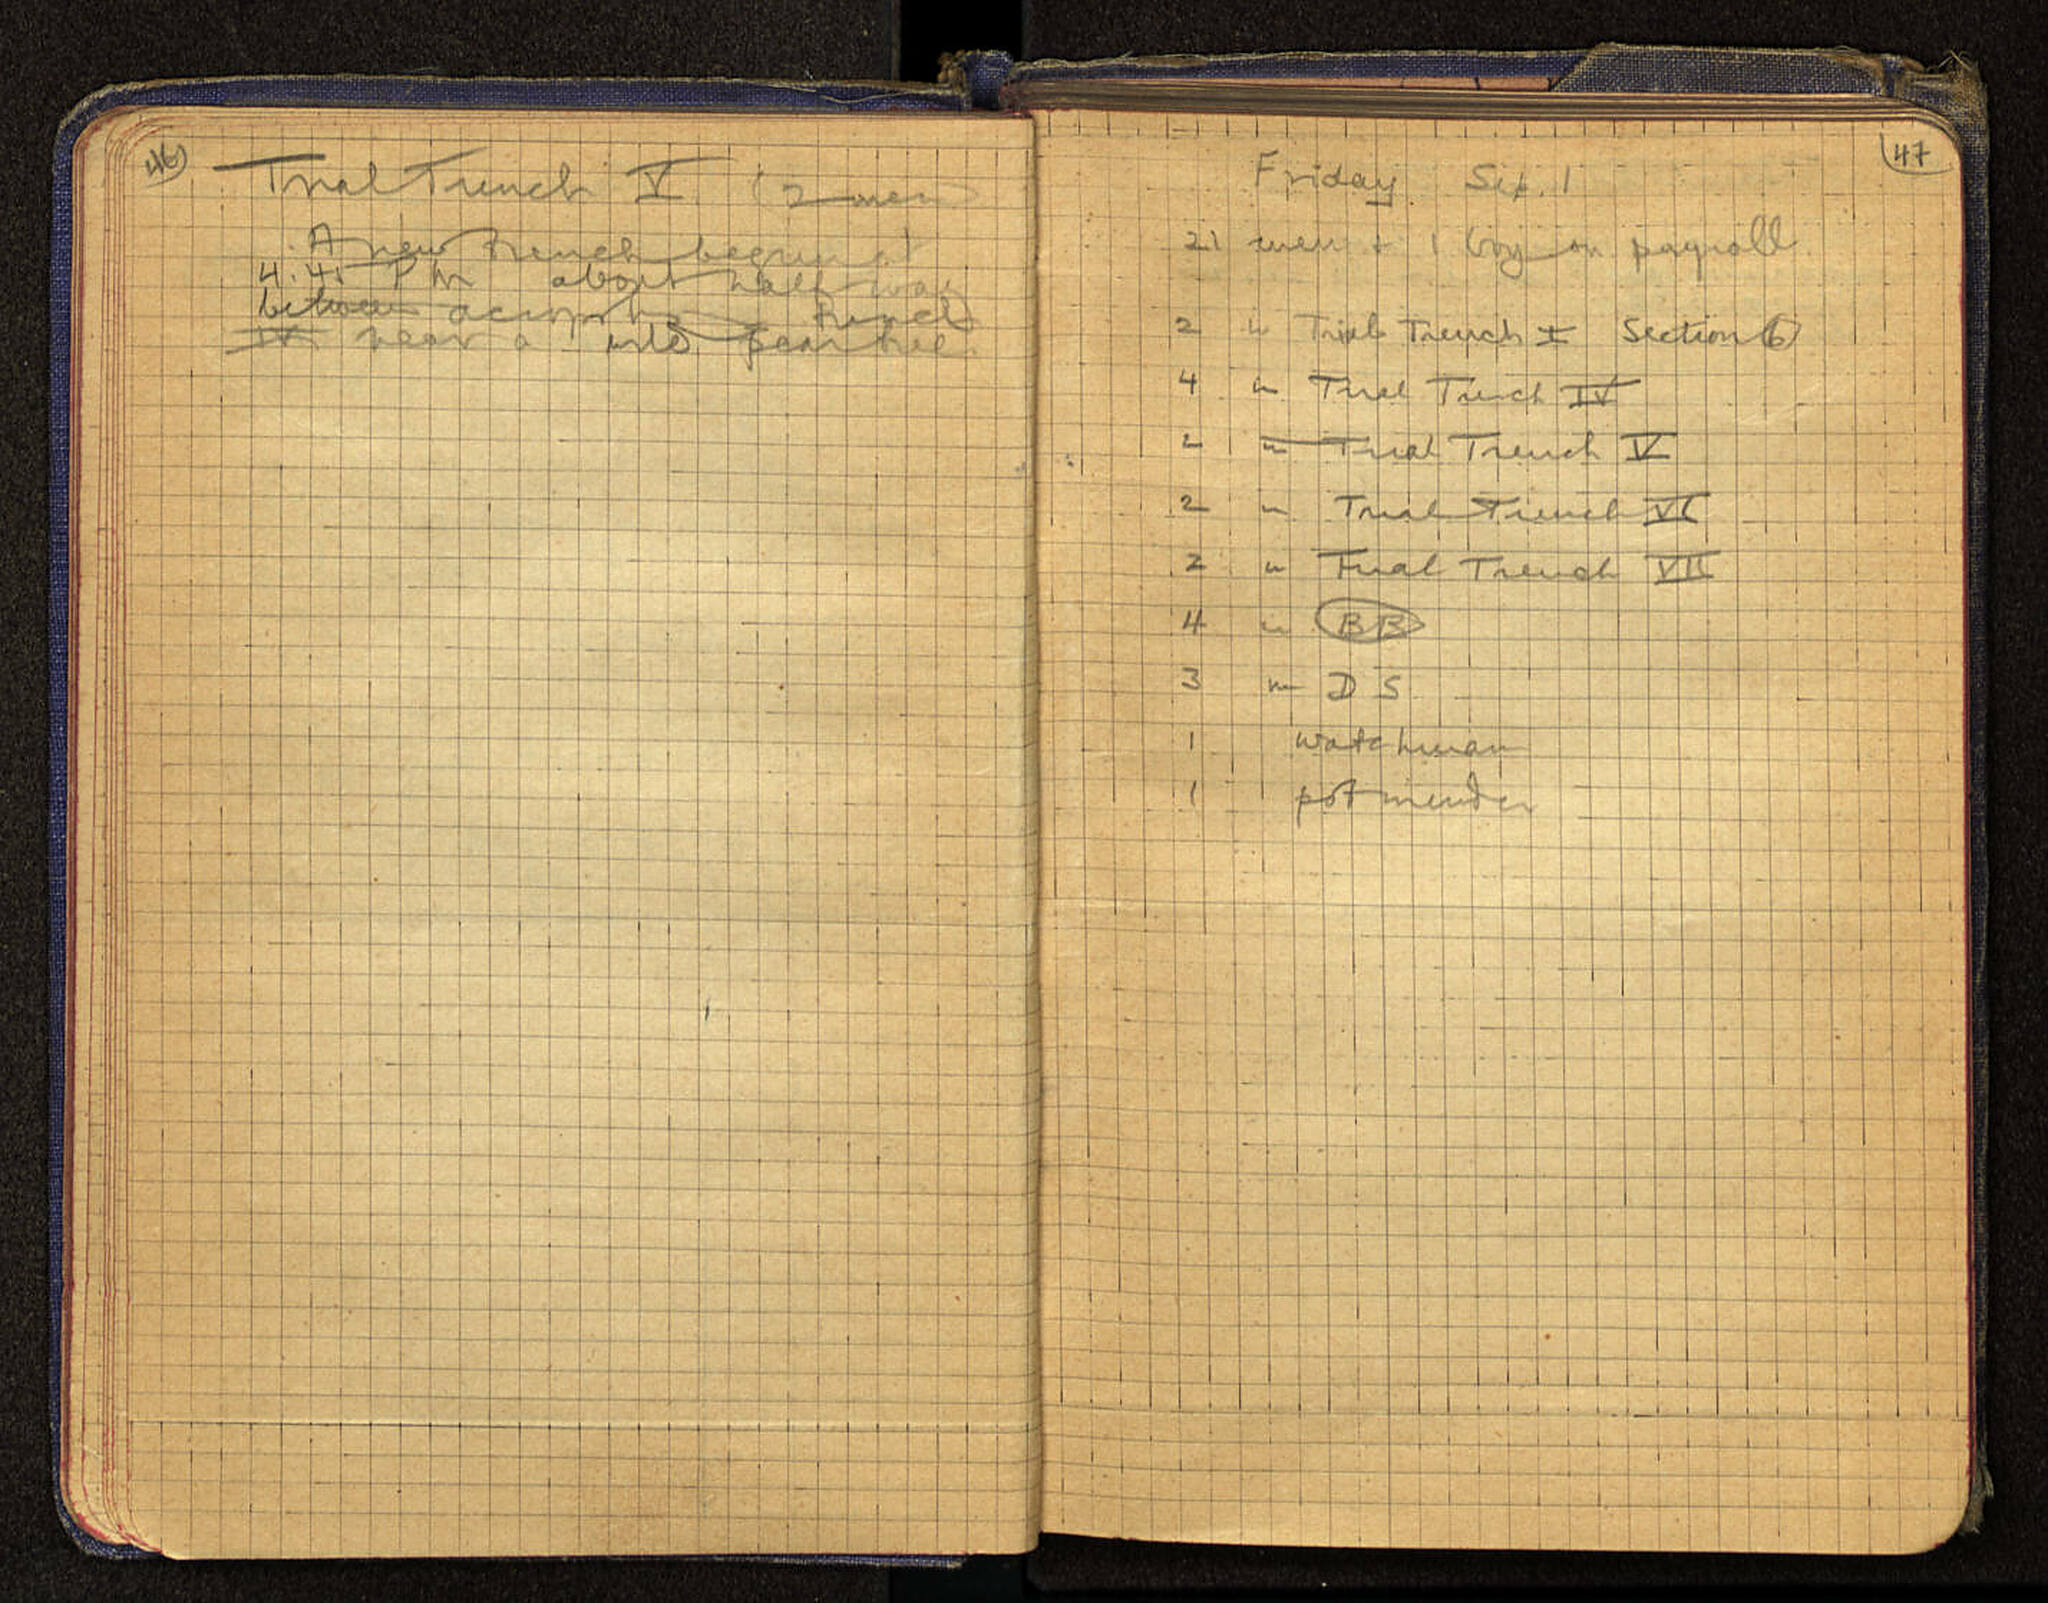 46
Trial Trench V (2 men
A new trench begun at
4.45 PM about half way
between acropolis Trench
IV near a wild pear tree.
47
Friday Sep. 1
21 men + 1 boy on payroll
2 in Trial Trench I Section 6
4 in Trial Trench IV
2 in Trial Trench V
2 in Trial Trench VI
2 in Trial Trench VII
4 in BB
3 in DS
1 watchman
1 pot mender